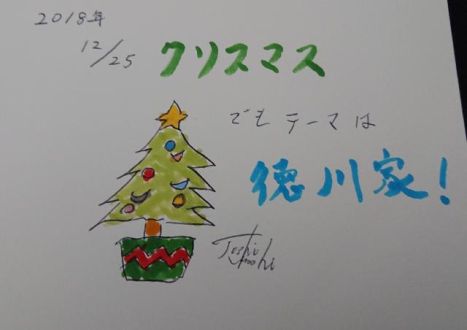 2018年
12/25
クリスマス
でも テーマは
徳川家!